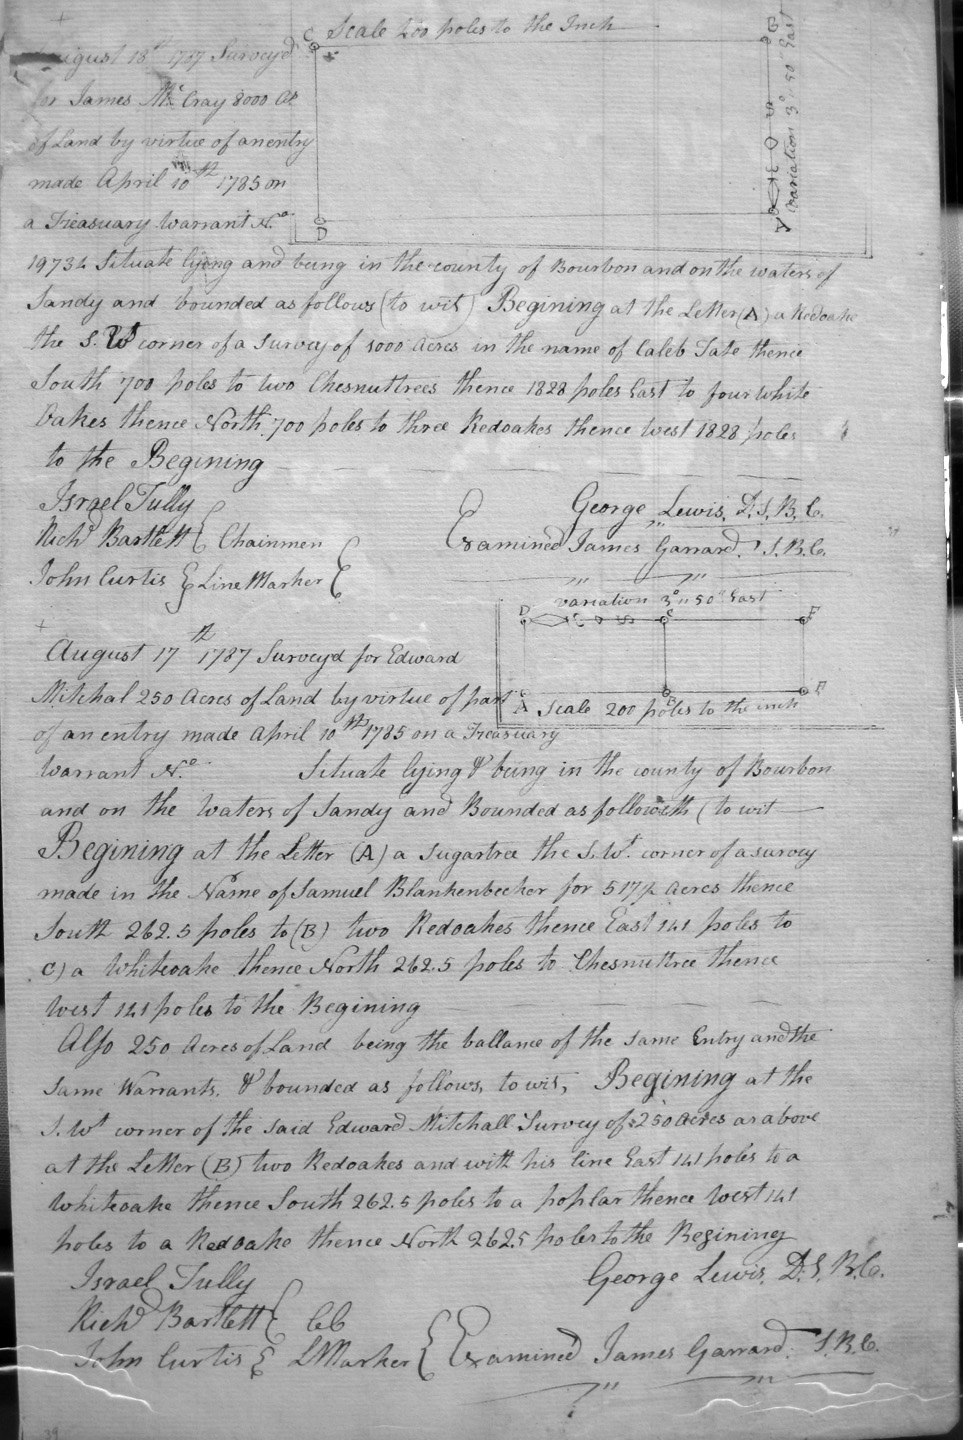 Scale 200 poles to the Inch
August 18th 1787 Survey'd
for James McCray 8000 As
of Land by virtue of an entry
made April 10th 1785 on
a Treasuary Warrant No
C
D
B
A
variation 3° 50" East
19734 Situate lying and being in the county of Bourbon and on the waters of
Sandy and bounded as follows (to wit) Begining at the Letter (A) a Redoake
the S. Wt corner of a Survey of 1000 Acres in the name of Caleb Tate thence
South 700 poles to two Chesnuttrees thence 1828 poles East to four white
Oakes thence North 700 poles to three Redoakes thence west 1828 poles
to the Begining
Israel Tully
Richd Bartlett } Chainmen
John Curtis } Line Marker
George Lewis, D.S.B.C.
Examined James Garrard. S.B.C.
variation 3° 50" East
D F
A B
Scale 200 poles to the inch
August 17th 1787 Survey'd for Edward
Mitchal 250 Acres of Land by virtue of part
of an entry made April 10th 1785 on a Treasuary
Warrant No Situate lying & being in the county of Bourbon
and on the waters of Sandy and Bounded as followeth (to wit
Begining at the Letter (A) a Sugartree the S. Wt. corner of a survey
made in the Name of Samuel Blankenbecker for 517½ Acres thence
South 262.5 poles to (B) two Redoakes thence East 141 poles to
C) a Whiteoake thence North 262.5 poles to Chesnuttree thence
west 141 poles to the Begining
Also 250 Acres of Land being the ballance of the same Entry and the
same Warrants, & bounded as follows, to wit, Begining at the
S. Wt corner of the said Edward Mitchall Survey of 250 Acres as above
at the Letter (B) two Redoakes and with his line East 141 poles to a
Whiteoake thence South 262.5 poles to a poplar thence West 141
poles to a Redoake thence North 262.5 poles to the Begining
Israel Tully
Richd Bartlett } CC
John Curtis } LMarker
George Lewis, D.S.B.C.
Examined James Garrard. S.B.C.